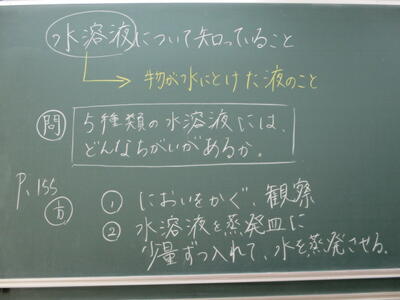 水溶液について知っていること
物が水にとけた液のこと
問 5種類の水溶液には、
どんなちがいがあるか。
P.155
方 ① においをかぐ、観察
② 水溶液を蒸発皿に
少量ずつ入れて、水を蒸発させる。